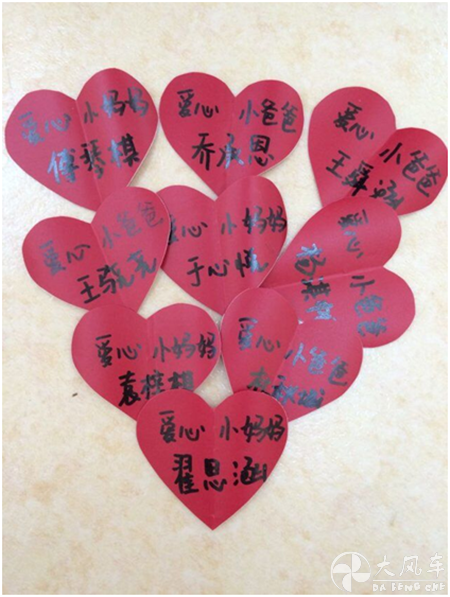 爱心 小妈妈
傅琴棋
爱心 小爸爸
乔承恩
爱心 小爸爸
王舜涵
爱心 小爸爸
王骁尧
爱心 小妈妈
于心悦
爱心 小爸爸
爱心 小妈妈
袁梓棋
爱心 小爸爸
爱心 小妈妈
翟思涵
大风车
DA FENG CHE